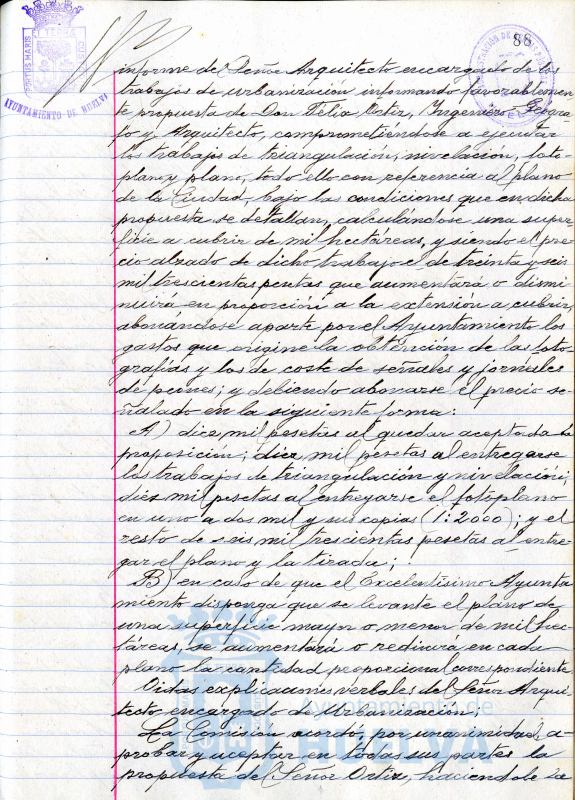 88
PORTUS MARIS ET TERRAE CUSTODIA
AYUNTAMIENTO DE HUELVA
informe del Señor Arquitecto encargado de los
trabajos de urbanización informando favorablemen-
te propuesta de Don Felix Ortiz, Ingeniero Geogra-
fo y Arquitecto, comprometiendose a ejecutar
los trabajos de triangulación, nivelación, foto-
plano y plano, todo ello con referencia al plano
de la Ciudad, bajo las condiciones que en dicha
propuesta se detallan, calculándose una super-
ficie a cubrir de mil hectáreas, y siendo el pre-
cio alzado de dicho trabajo el de treinta y seis
mil trescientas pesetas que aumentará o dismi-
nuirá en proporción a la extensión a cubrir,
abonándose aparte por el Ayuntamiento los
gastos que origine la obtención de las foto-
grafias y los de coste de señales y jornales
de peones; y debiendo abonarse el precio se-
ñalado en la siguiente forma:
A) diez mil pesetas al quedar aceptada la
proposición; diez mil pesetas al entregarse
los trabajos de triangulación y nivelación;
diez mil pesetas al entregarse el fotoplano
en uno a dos mil y sus copias (1:2000); y el
resto de seis mil trescientas pesetas al entre-
gar el plano y la tirada;
B) en caso de que el Excelentísimo Ayunta-
miento disponga que se levante el plano de
una superficie mayor o menor de mil hec-
táreas, se aumentará o reducirá en cada
plano la cantidad proporcional correspondiente
Vistas explicaciones verbales del Señor Arqui-
tecto encargado de Urbanización;
La Comisión acordó, por unanimidad, a-
probar y aceptar en todas sus partes la
propuesta del Señor Ortiz, haciendole la
Ayuntamiento de
HUELVA